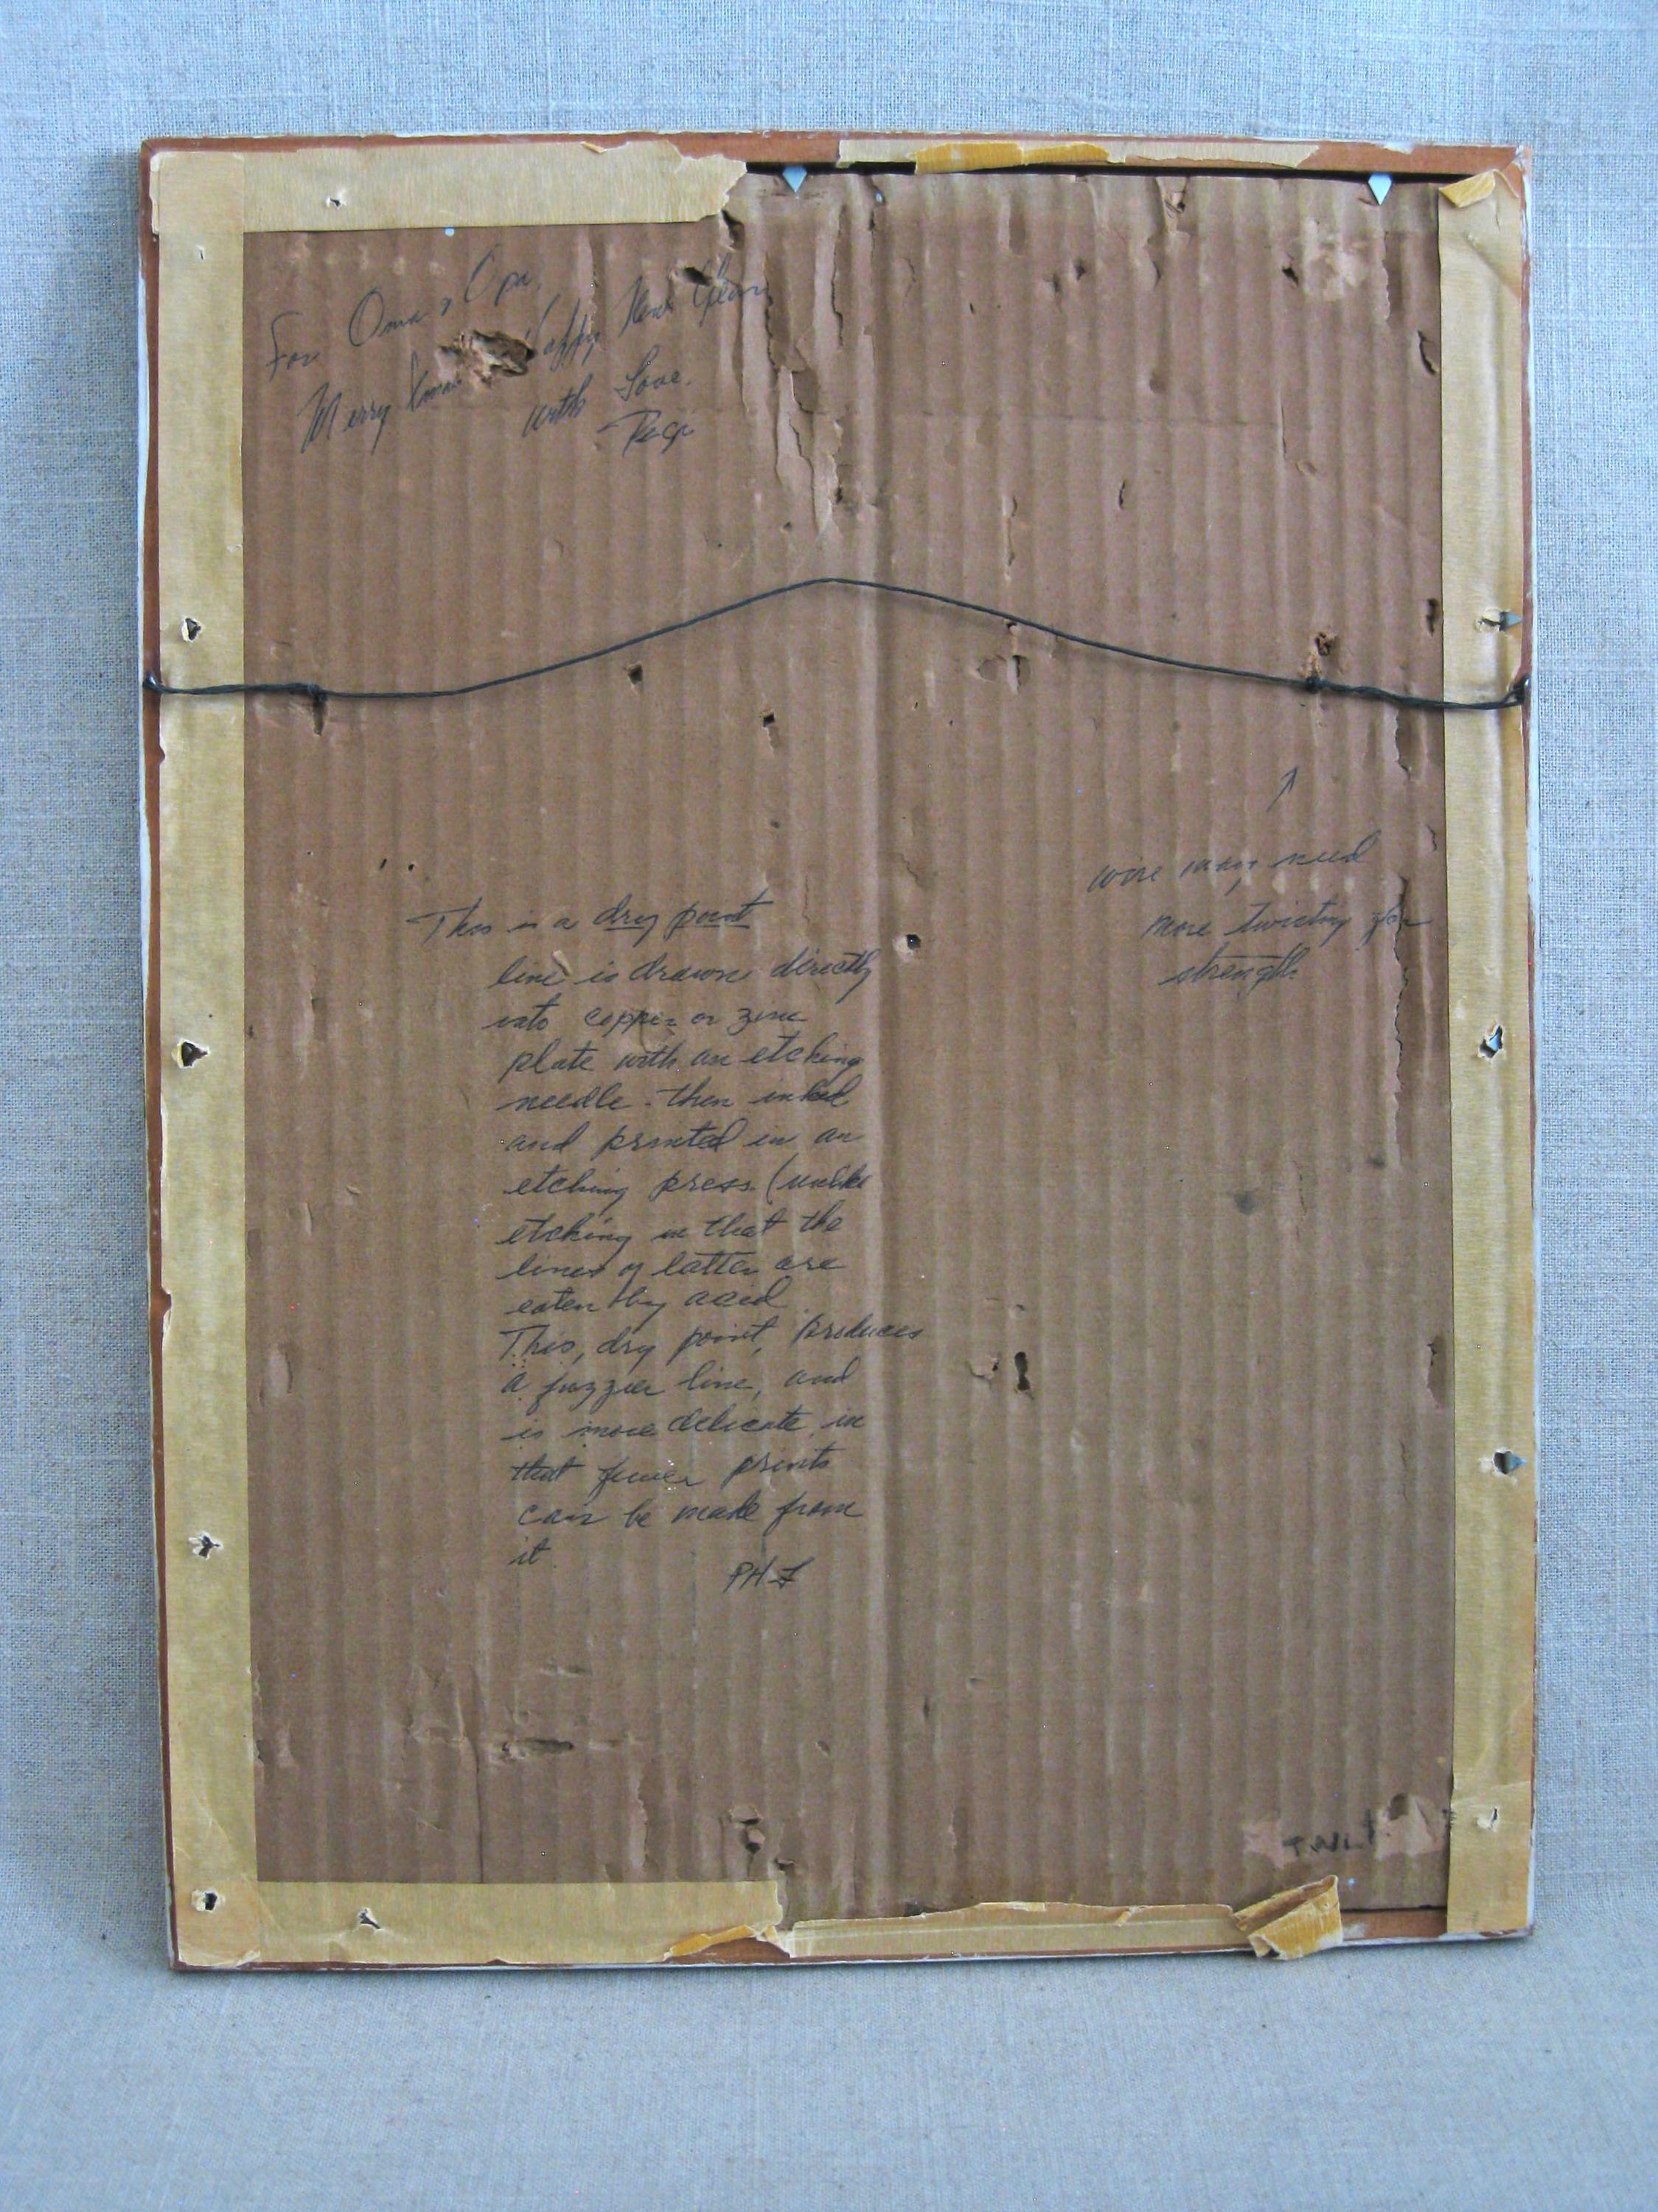 For Oma & Opa,
Merry Xmas Happy New Year
with Love.
wire may need
more twisting for
strength.
This is a dry point
line is drawn directly
into copper or zinc
plate with an etching
needle - then inked
and printed in an
etching press. (unlike
etching in that the
lines of latter are
eaten by acid
This, dry point, produces
a fuzzier line, and
is more delicate in
that fewer prints
can be made from
it.
PHF